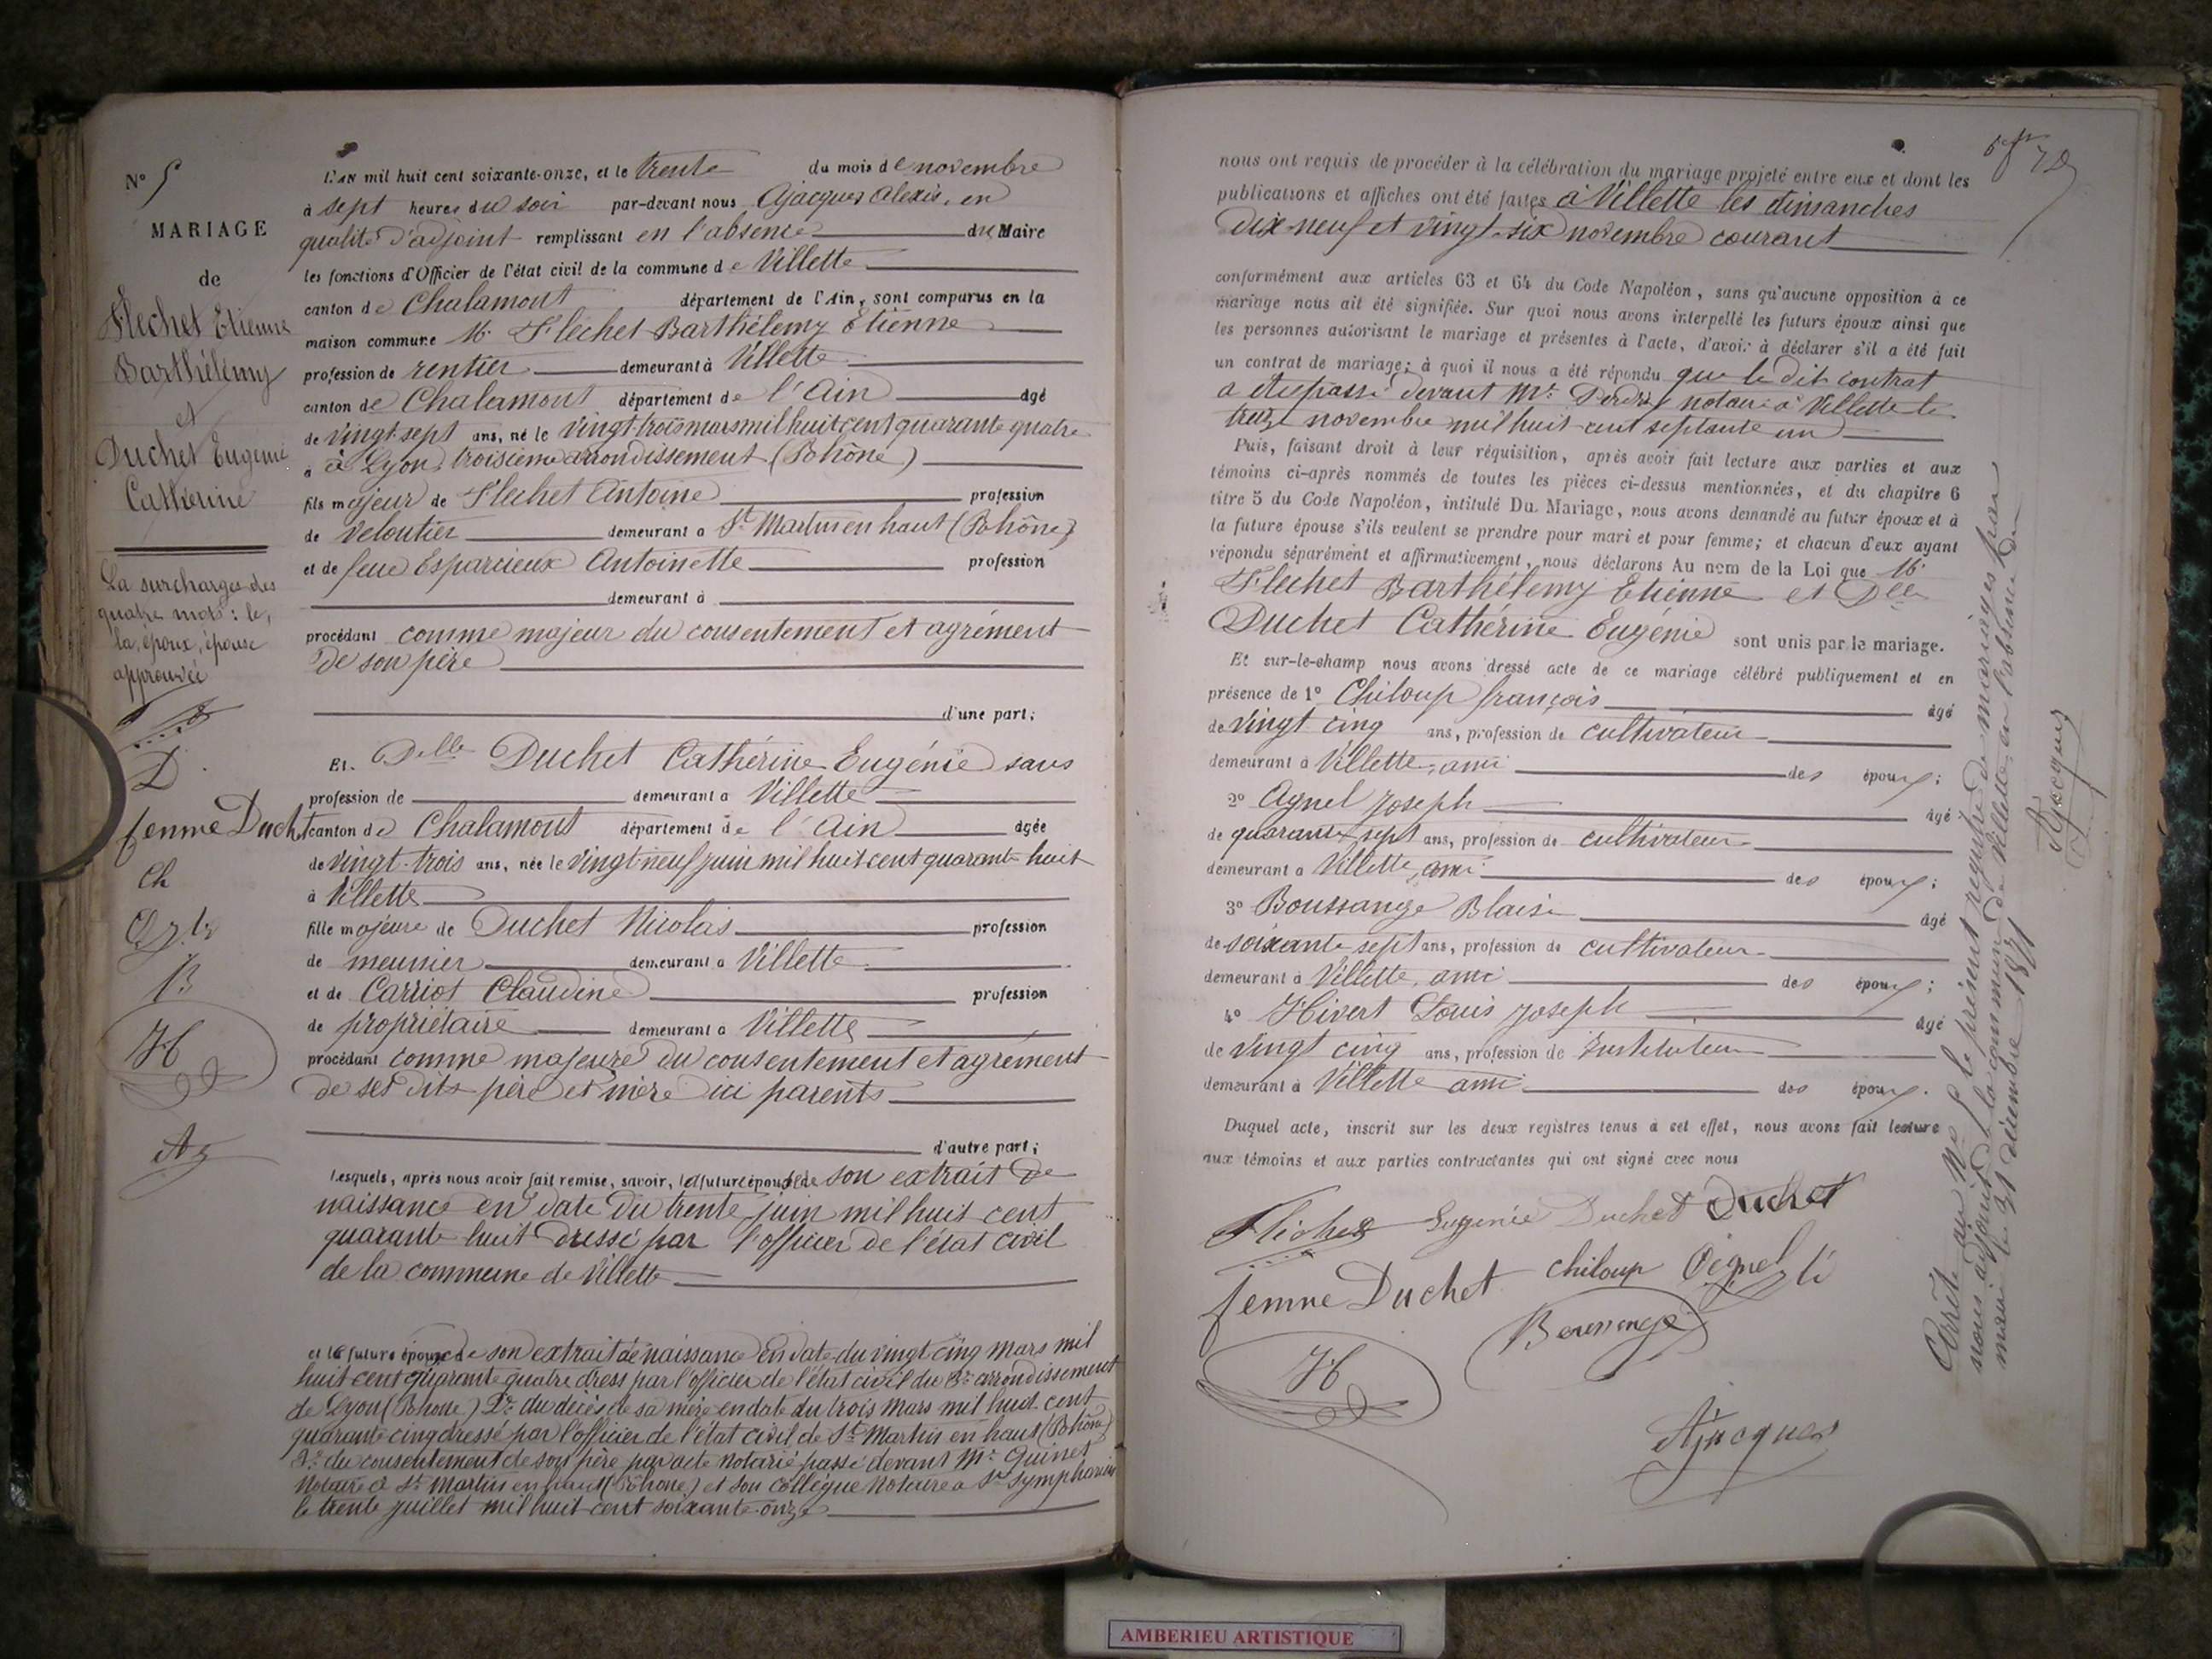 N° 5
MARIAGE
de
Flechet Etienne
Barthélemy
et
Duchet Eugénie
Catherine
La surcharge des
quatre mots : le,
la, époux, épouse
approuvée
D
femme Duchet
Ch
B
H
L'AN mil huit cent soixante-onze, et le trente du mois de novembre
à sept heures du soir par-devant nous Ajacques Alexis, en
qualité d'adjoint remplissant en l'absence du Maire
les fonctions d'Officier de l'état civil de la commune de Villette
canton de Chalamont département de l'Ain, sont comparus en la
maison commune Mr Flechet Barthélemy Etienne
profession de rentier demeurant à Villette
canton de Chalamont département de l'Ain âgé
de vingt-sept ans, né le vingt-trois mars mil huit cent quarante quatre
à à Lyon, troisième arrondissement (Rhône)
fils majeur de Flechet Antoine profession
de veloutier demeurant à St Martin en haut (Rhône)
et de feue Esparcieux Antoinette profession
demeurant à
procédant comme majeur du consentement et agrément
de son père
d'une part;
Et Delle Duchet Cathérine Eugénie sans
profession de demeurant à Villette
canton de Chalamont département de l'Ain âgée
de vingt-trois ans, née le vingt-neuf juin mil huit cent quarante huit
à Villette
fille majeure de Duchet Nicolas profession
de meunier demeurant à Villette
et de Carriot Claudine profession
de propriétaire demeurant à Villette
procédant comme majeure du consentement et agrément
de ses dits père et mère ici parents
d'autre part;
Lesquels, après nous avoir fait remise, savoir, la future épouse de son extrait de
naissance en date du trente juin mil huit cent
quarante huit dressé par l'officier de l'état civil
de la commune de Villette
et le futur époux de son extrait de naissance en date du vingt cinq mars mil
huit cent quarante quatre dressé par l'officier de l'état civil du 3e arrondissement
de Lyon (Rhône) 2° du décès de sa mère en date du trois mars mil huit cent
quarante cinq dressé par l'officier de l'état civil de St Martin en haut (Rhône)
3° du consentement de son père par acte notarié passé devant Me Guinet
Notaire à St Martin en haut (Rhône) et son collègue Notaire à St Symphorien
le trente juillet mil huit cent soixante-onze
nous ont requis de procéder à la célébration du mariage projeté entre eux et dont les
publications et affiches ont été faites à Villette les dimanches
dix-neuf et vingt-six novembre courant
conformément aux articles 63 et 64 du Code Napoléon, sans qu'aucune opposition à ce
mariage nous ait été signifiée. Sur quoi nous avons interpellé les futurs époux ainsi que
les personnes autorisant le mariage et présentes à l'acte, d'avoir à déclarer s'il a été fait
un contrat de mariage; à quoi il nous a été répondu que le dit contrat
a été passé devant Me notaire à Villette le
treize novembre mil huit cent septante un
Puis, faisant droit à leur réquisition, après avoir fait lecture aux parties et aux
témoins ci-après nommés de toutes les pièces ci-dessus mentionnées, et du chapitre 6
titre 5 du Code Napoléon, intitulé Du Mariage, nous avons demandé au futur époux et à
la future épouse s'ils veulent se prendre pour mari et pour femme; et chacun d'eux ayant
répondu séparément et affirmativement, nous déclarons Au nom de la Loi que Mr
Flechet Barthélemy Etienne et Dlle
Duchet Cathérine Eugénie sont unis par le mariage.
Et sur-le-champ nous avons dressé acte de ce mariage célébré publiquement et en
présence de 1° Chiloup françois âgé
de vingt cinq ans, profession de cultivateur
demeurant à Villette, ami des époux;
2° Agnel Joseph âgé
de quarante-sept ans, profession de cultivateur
demeurant à Villette, ami des époux;
3° Boussange Blaise âgé
de soixante-sept ans, profession de cultivateur
demeurant à Villette, ami des époux;
4° Hivert Louis Joseph âgé
de vingt cinq ans, profession de Instituteur
demeurant à Villette ami des époux.
Duquel acte, inscrit sur les deux registres tenus à cet effet, nous avons fait lecture
aux témoins et aux parties contractantes qui ont signé avec nous
Flechet Eugénie Duchet Duchet
femme Duchet chiloup
H
Ajacques
Arrêté au N° 5 le présent registre de mariages par
nous adjoint de la commune de Villette en l'absence du
maire le 31 décembre 1871
Ajacques
AMBERIEU ARTISTIQUE